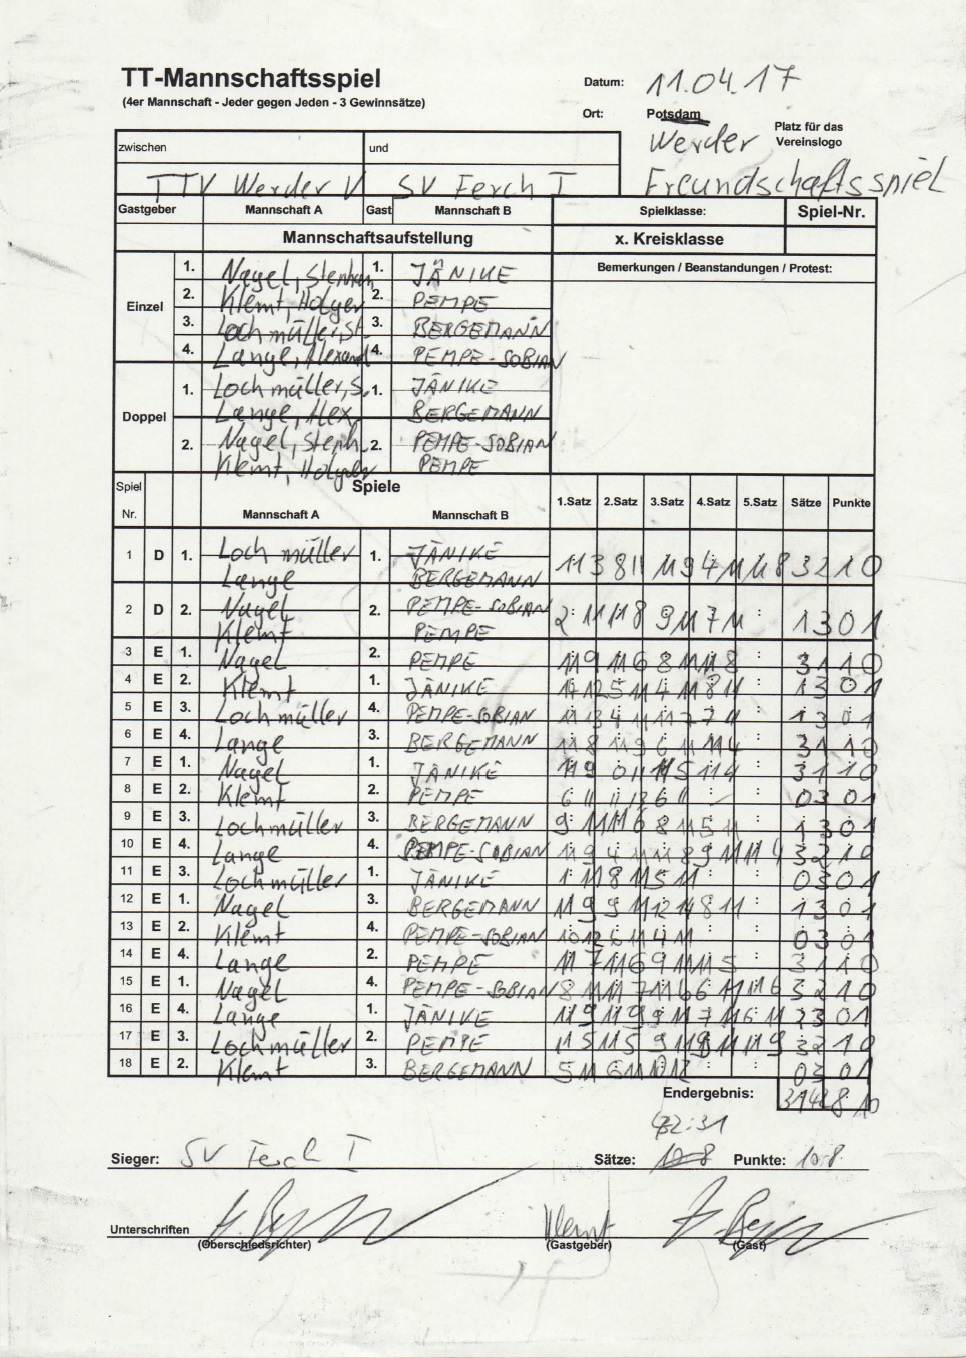 TT-Mannschaftsspiel
(4er Mannschaft - Jeder gegen Jeden - 3 Gewinnsätze)
Datum: 11.04.17
Ort: Potsdam
Werder
Platz für das Vereinslogo
Freundschaftsspiel
zwischen und
TTV Werder V SV Ferch I
Gastgeber Mannschaft A Gast Mannschaft B Spielklasse: Spiel-Nr.
Mannschaftsaufstellung x. Kreisklasse
Bemerkungen / Beanstandungen / Protest:
Einzel
1. Nagel, Stephan 1. JÄNIKE
2. Klemt, Holger 2. PEMPE
3. Lochmüller, St 3. BERGEMANN
4. Lange, Alexand 4. PEMPE-SOBIAN
Doppel
1. Lochmüller, S. 1. JÄNIKE
Lange, Alex. BERGEMANN
2. Nagel, Steph. 2. PEMPE-SOBIAN
Klemt, Holger PEMPE
Spiel Nr. Spiele
Mannschaft A Mannschaft B 1.Satz 2.Satz 3.Satz 4.Satz 5.Satz Sätze Punkte
1 D 1. Lochmüller 1. JÄNIKE
Lange BERGEMANN 11 3 8 11 11 9 4 11 11 8 3 2 1 0
2 D 2. Nagel 2. PEMPE-SOBIAN
Klemt PEMPE 2 11 11 8 9 11 7 11 : 1 3 0 1
3 E 1. Nagel 2. PEMPE 11 9 11 6 8 11 11 8 : 3 1 1 0
4 E 2. Klemt 1. JÄNIKE 5 11 4 11 8 11 : 1 3 0 1
5 E 3. Lochmüller 4. PEMPE-SOBIAN 11 3 4 11 7 11 : 1 3 0 1
6 E 4. Lange 3. BERGEMANN 11 8 11 9 6 11 11 4 : 3 1 1 0
7 E 1. Nagel 1. JÄNIKE 11 9 0 11 11 5 11 4 : 3 1 1 0
8 E 2. Klemt 2. PEMPE 6 11 11 13 6 11 : : 0 3 0 1
9 E 3. Lochmüller 3. BERGEMANN 9 11 11 6 8 11 5 11 : 1 3 0 1
10 E 4. Lange 4. PEMPE-SOBIAN 11 9 4 11 11 8 9 11 11 9 3 2 1 0
11 E 3. Lochmüller 1. JÄNIKE 1 11 8 11 5 11 : : 0 3 0 1
12 E 1. Nagel 3. BERGEMANN 11 9 9 11 12 14 8 11 : 1 3 0 1
13 E 2. Klemt 4. PEMPE-SOBIAN 10 12 6 11 4 11 : : 0 3 0 1
14 E 4. Lange 2. PEMPE 11 7 11 6 9 11 11 5 : 3 1 1 0
15 E 1. Nagel 4. PEMPE-SOBIAN 8 11 11 7 11 6 6 11 11 6 3 2 1 0
16 E 4. Lange 1. JÄNIKE 11 9 11 9 9 11 7 11 6 11 2 3 0 1
17 E 3. Lochmüller 2. PEMPE 11 5 11 5 9 11 11 9 3 2 1 0
18 E 2. Klemt 3. BERGEMANN 5 11 6 11 10 12 : : 0 3 0 1
Endergebnis: 31 42 8 10
42:31
Sieger: SV Ferch I Sätze: 10:8 Punkte: 10:8
Unterschriften Klemt
(Oberschiedsrichter) (Gastgeber) (Gast)